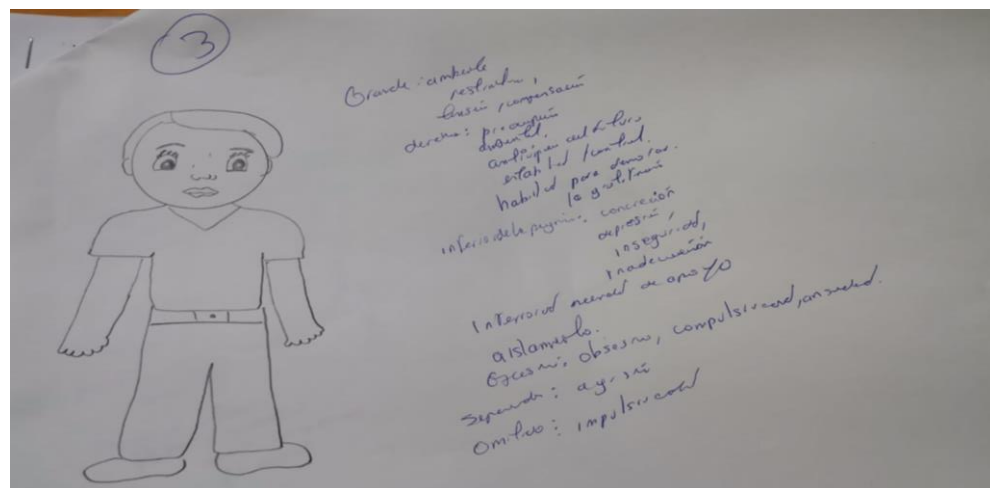 3
Grande: ambiente
restrictivo,
tensión, compensación
derecho: preocupación
ambiental.
anticipan el futuro
estabilidad / control.
habilidad para demorar
la gratificación
inferior de la página: concreción
depresión,
inseguridad,
inadecuación
Inferioridad necesidad de apoyo
aislamiento.
Excesivo, obsesivo, compulsividad, ansiedad.
Separada: agresión
Omitivo: impulsividad